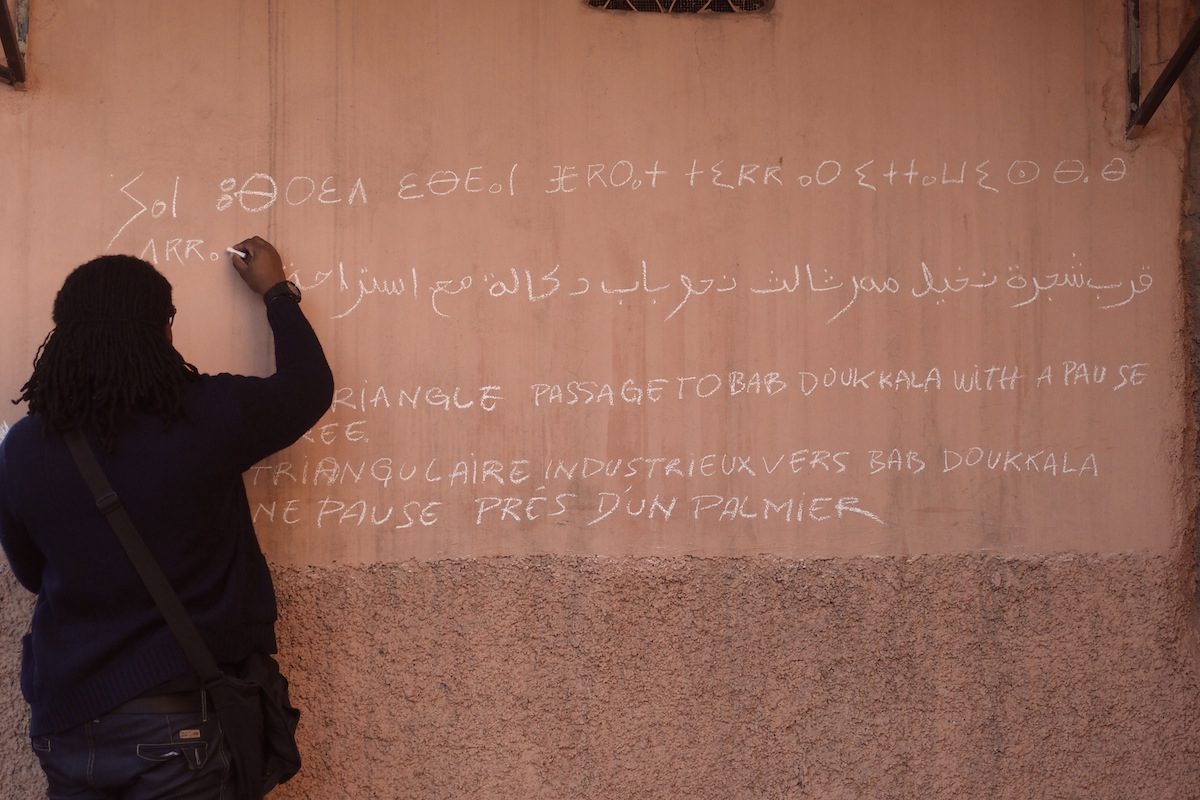 ⵢⴰⵏ ⵓⴱⵔⵉⴷ ⵉⴱⴹⴰⵏ ⵅⴽⵔⴰⵜ ⵜⵉⴽⴽ ⴰⵔ ⵉⵜⵜⴰⵡⵉ ⵙ ⴱⴰⴱ
ⴷⴽⴽⴰ
قرب شجرة نخيل ممر ثالث نحو باب دكالة مع استراحة
RIANGLE PASSAGE TO BAB DOUKKALA WITH A PAUSE
REE.
TRIANGULAIRE INDUSTRIEUX VERS BAB DOUKKALA
NE PAUSE PRÉS D'UN PALMIER